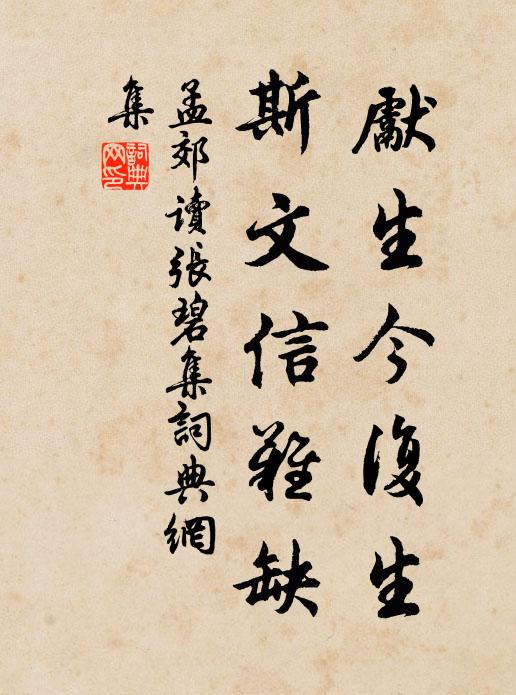 獻生今復生
斯文信難缺
孟郊讀張碧集詞典網
集
詞典
網印